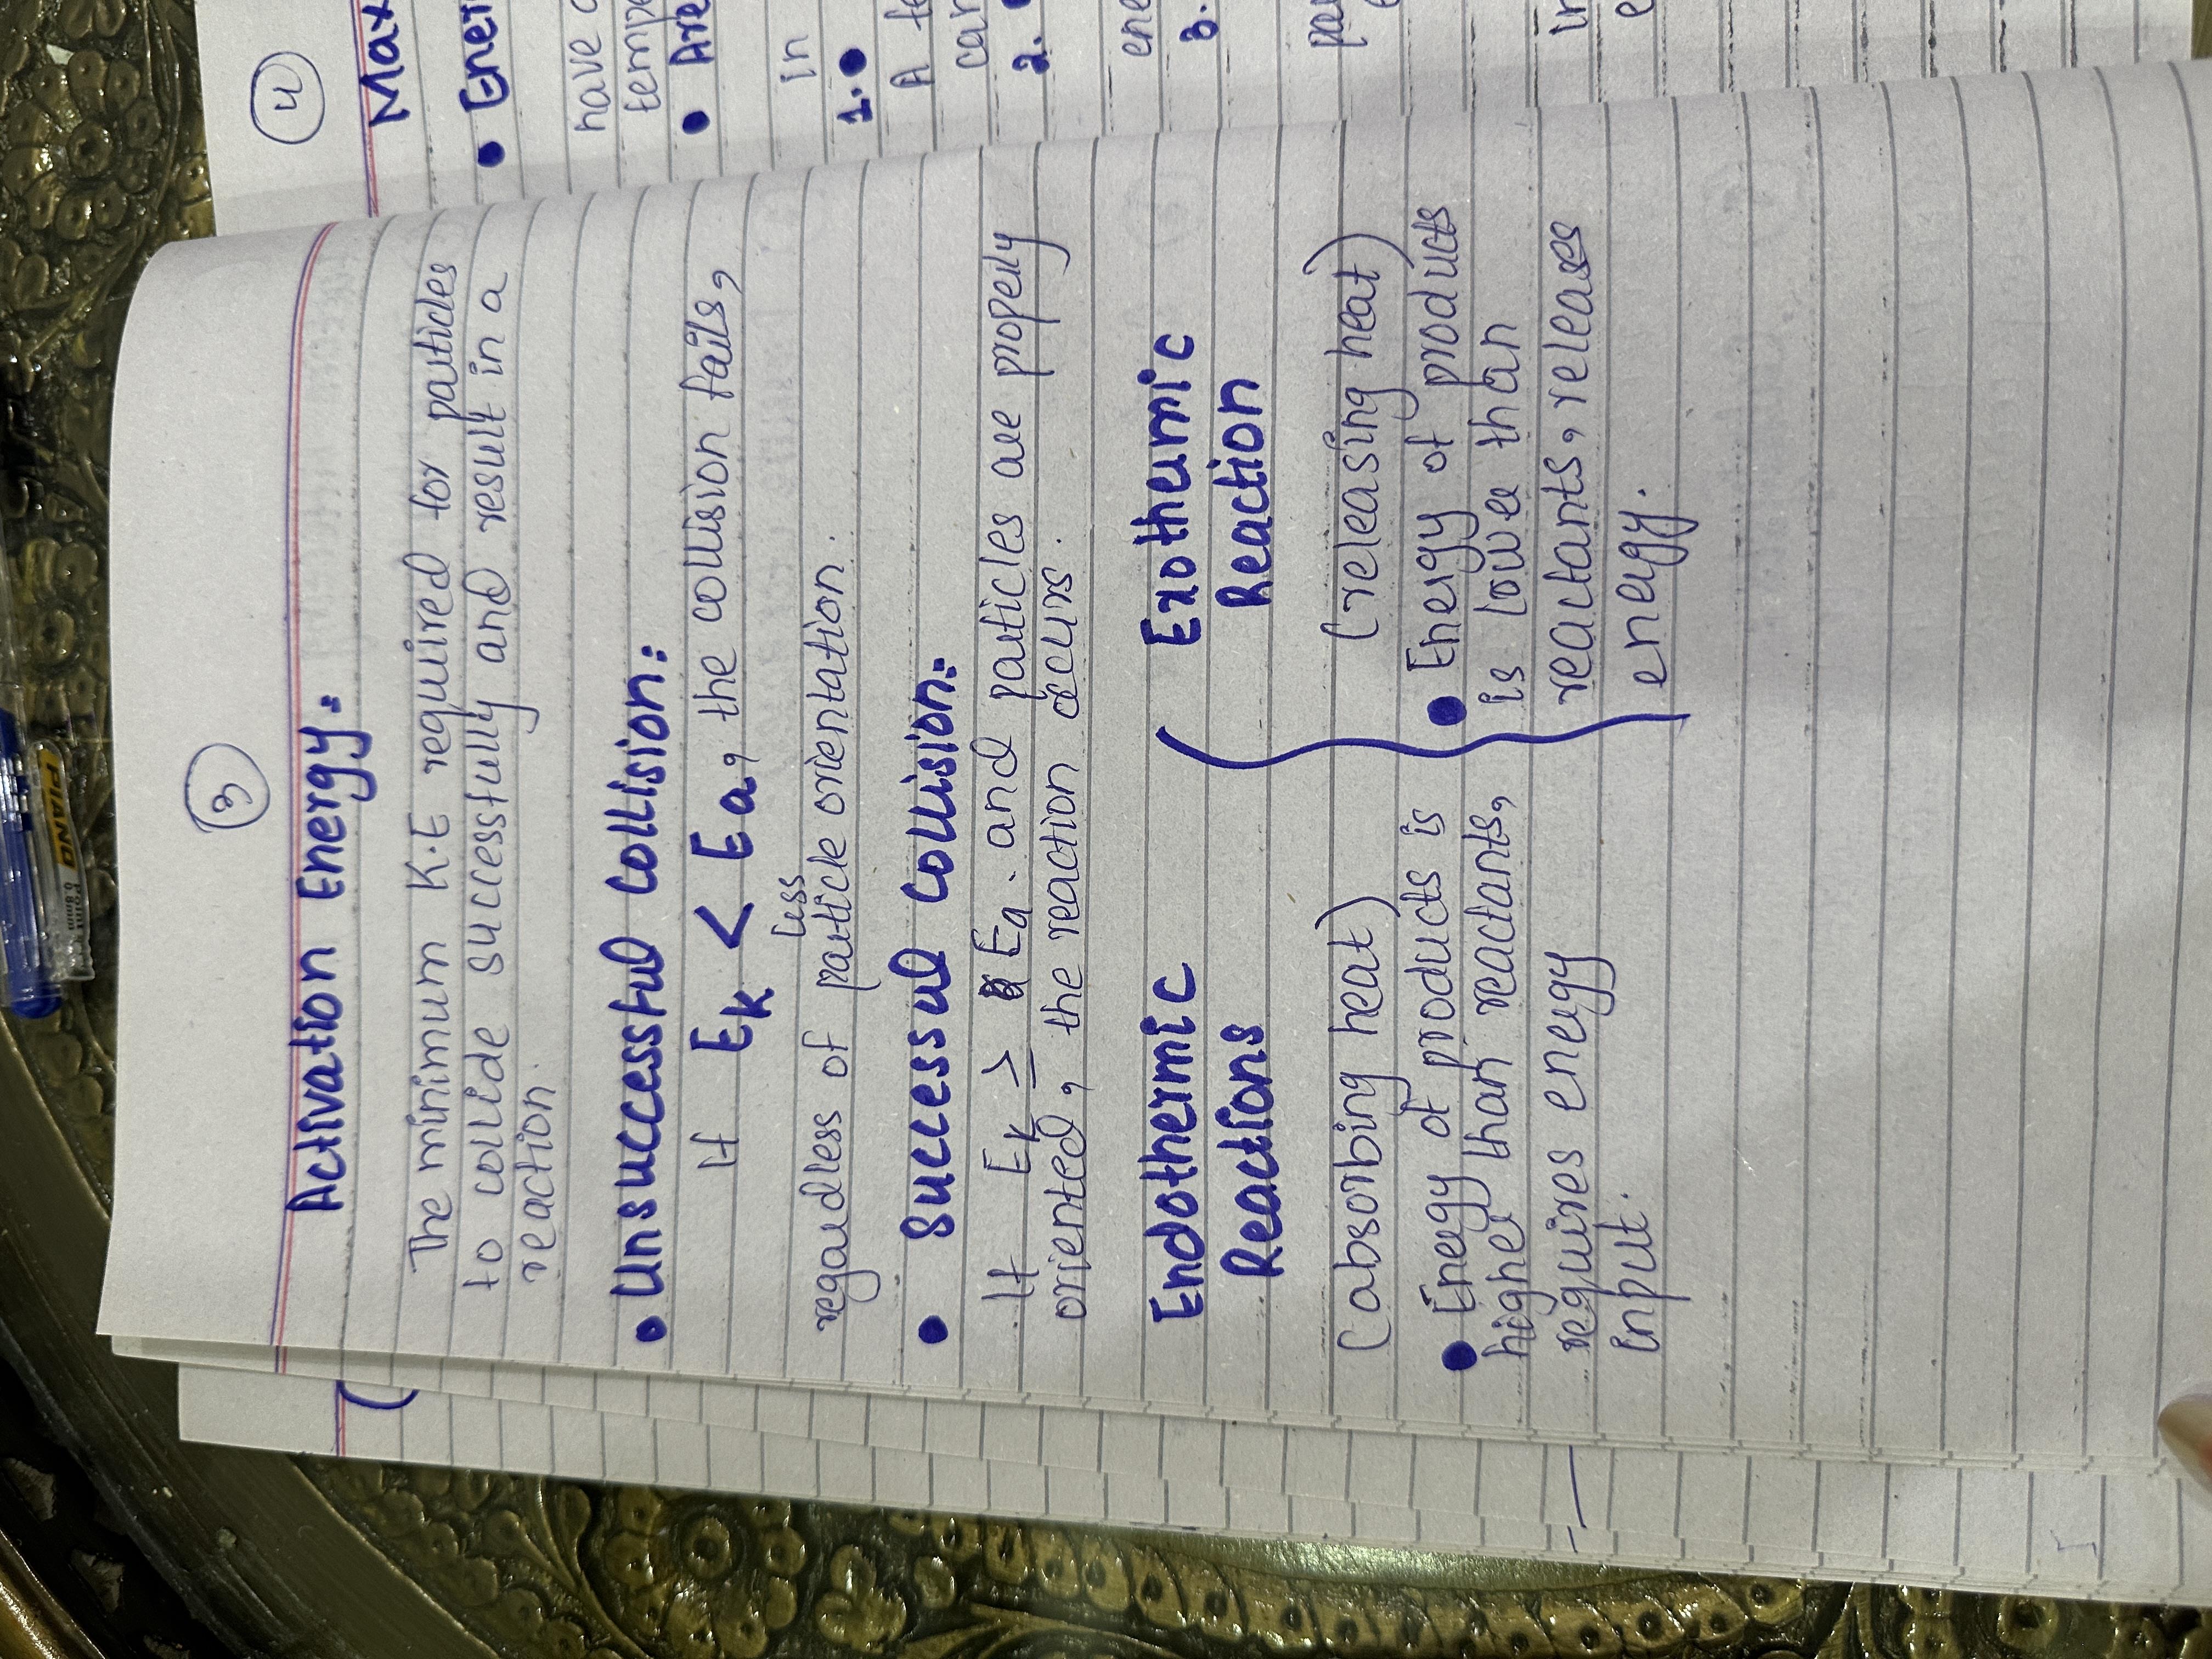 3
Activation Energy:
The minimum K.E required for particles
to collide successfully and result in a
reaction.
• Unsuccessful Collision:
If Ek < Ea, the collision fails,
less
regardless of particle orientation.
• Successul Collision:
If Ek ≥ Ea. and particles are properly
oriented, the reaction occurs.
Endothermic
Reactions
(absorbing heat)
• Energy of products is
higher than reactants,
requires energy
input.
Exothermic
Reaction
(releasing heat)
• Energy of products
is lower than
reactants, releases
energy.
4
Max
• Ener
have
tempe
• Are
in
1. •
A
can
2.
ene
3.
in
PIANO